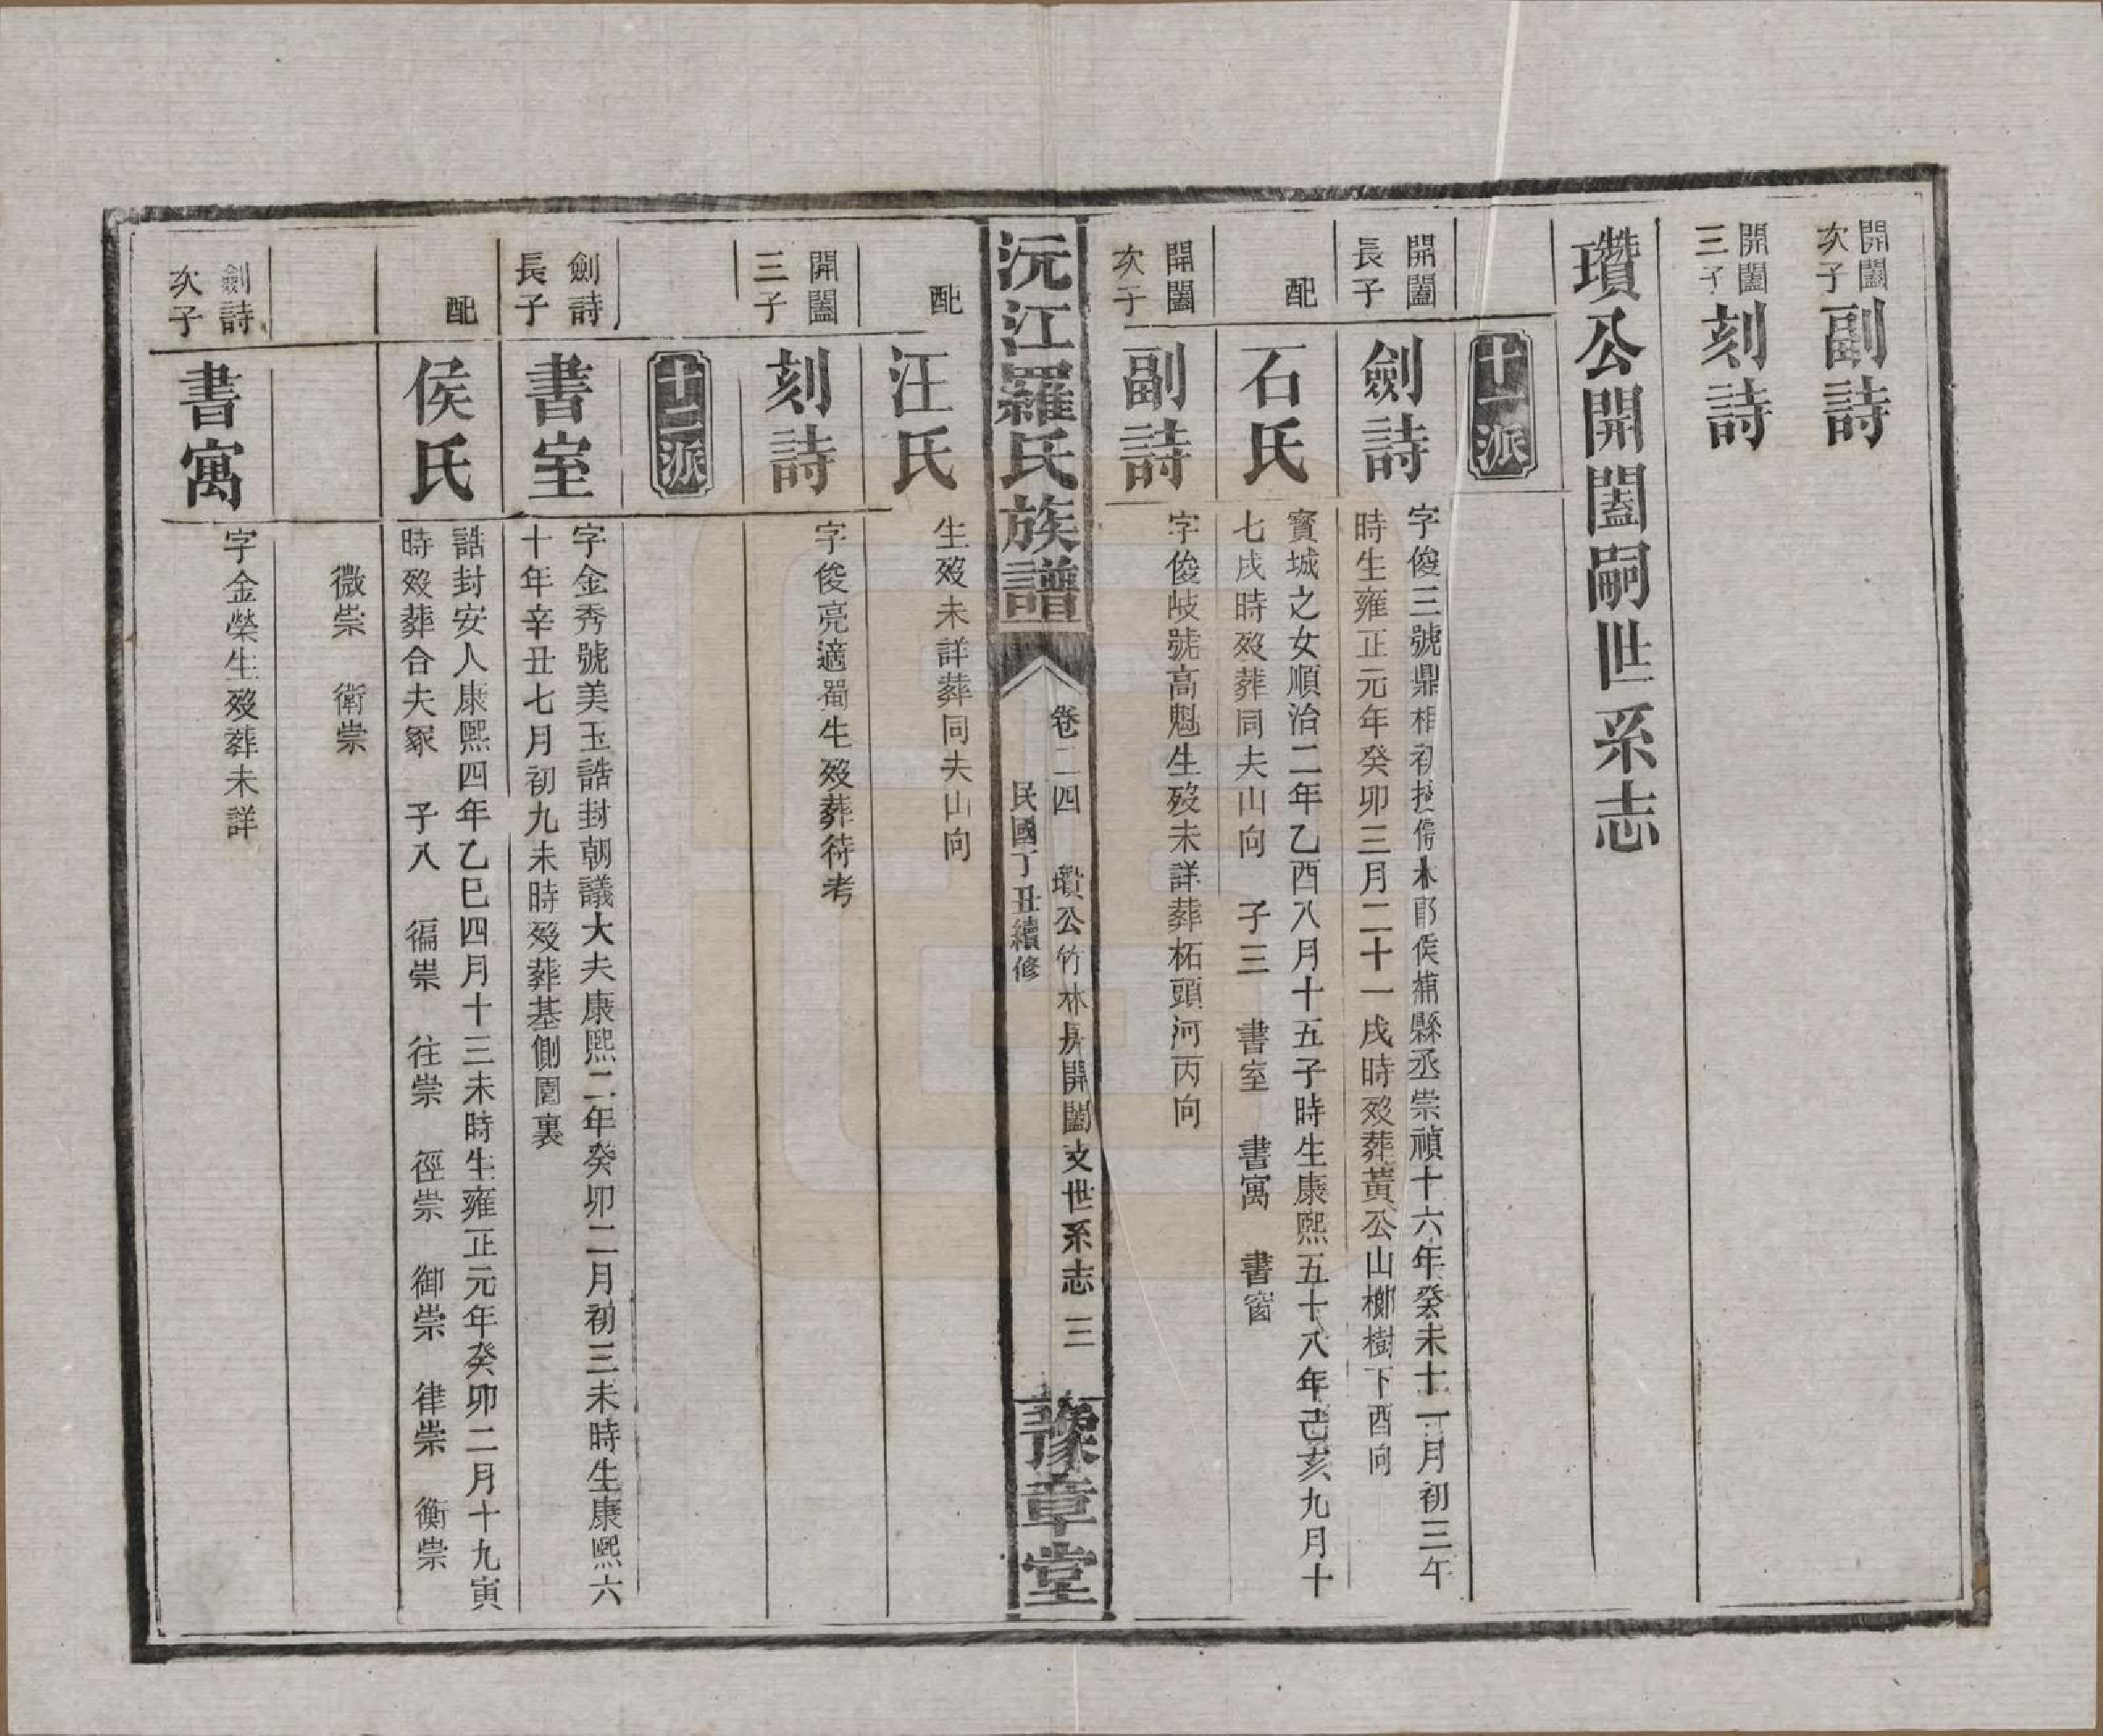 開闔次子 副詩
開闔三子 刻詩
瓚公開闔嗣世系志
十一派
開闔長子 劍詩 字俊三號鼎相初授儒林郎侯補縣丞崇禎十六年癸未十一月初三午
時生雍正元年癸卯三月二十一戌時歿葬黃公山櫛樹下酉向
配 石氏 寳城之女順治二年乙酉八月十五子時生康熙五十八年己亥九月十
七戌時歿葬同夫山向 子三 書室 書寓 書窗
開闔次子 副詩 字俊岐號高魁生歿未詳葬柘頭河丙向
沅江羅氏族譜
卷二四 瓚公竹林房開闔支世系志 三
民國丁丑續修
豫章堂
配 汪氏 生歿未詳葬同夫山向
開闔三子 刻詩 字俊亮適蜀生歿葬待考
十二派
劍詩長子 書室 字金秀號美玉誥封朝議大夫康熙二年癸卯二月初三未時生康熙六
十年辛丑七月初九未時歿葬基側園裏
配 侯氏 誥封安人康熙四年乙巳四月十三未時生雍正元年癸卯二月十九寅
時歿葬合夫冢 子八 徧崇 往崇 徑崇 御崇 律崇 衡崇
微崇 衛崇
劍詩次子 書寓 字金榮生歿葬未詳